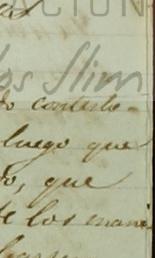 ACION
os Slim
do contesto-
luego que
o, que
e los mani